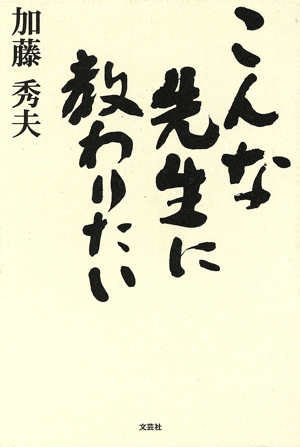 こんな
先生に
教わりたい
加藤 秀夫
文芸社